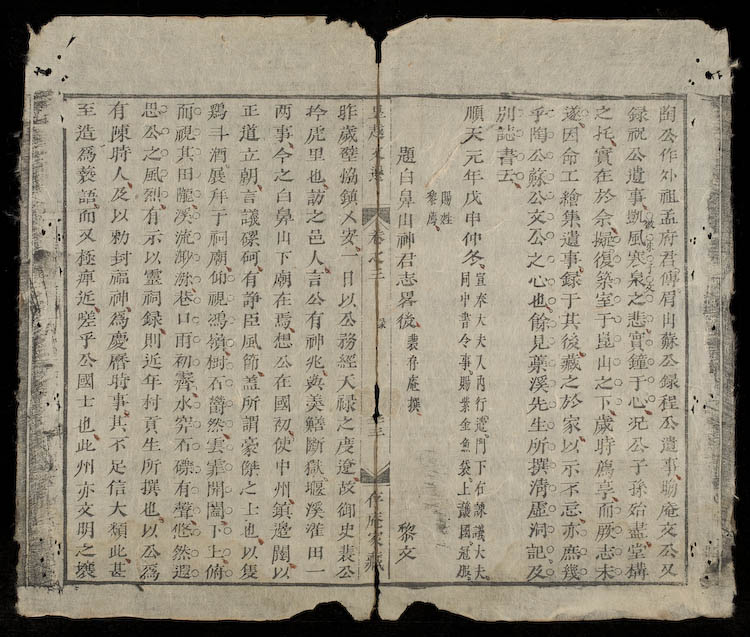 陶公作外祖孟府君傳眉山蘇公録程公遺事晦庵文公又
録祝公遺事凱風寒泉之悲實鍾于心况公子孫始盡堂構
之托實在於余擬復築室于崑山之下歲時薦享而厥志未
遂因命工繪集遺事録于其後藏之於家以示不忘亦庶幾
乎陶公蘇公文公之心也餘見蘂溪先生所撰清虚洞記及
別誌書云
賜姓
黎廌
順天元年戊申仲冬
宣奉大夫入内行遣門下右諫議大夫
同中書令事賜紫金魚袋上護國冠服
題白鼻山神君志畧後 裴存庵撰 黎文
皇越文選 卷之三 録 存庵家藏
昨歲協鎮乂安一日以公務經天禄之度遼故御史裴公
虎里也訪之邑人言公有神兆與美鱔斷獄堰溪漼田一
兩事今之白鼻山下廟在焉想公在國初使中州鎮邊閫以
正道立朝言議磥砢有諍臣風節蓋所謂豪傑之士也以隻
鷄斗酒展拜于祠廟仰視鴻嶺樹石欝然雲霏開闔下上俯
而視其田隴溪流巷口雨初霽水穿石磔有聲悠然遐
思公之風烈有示以靈祠録則近年村貢生所撰也以公爲
有陳時人及以勅封福神爲慶曆時事其不足信大類此甚
至造爲褻語而又極痺近嗟乎公國士也此州亦文明之壤